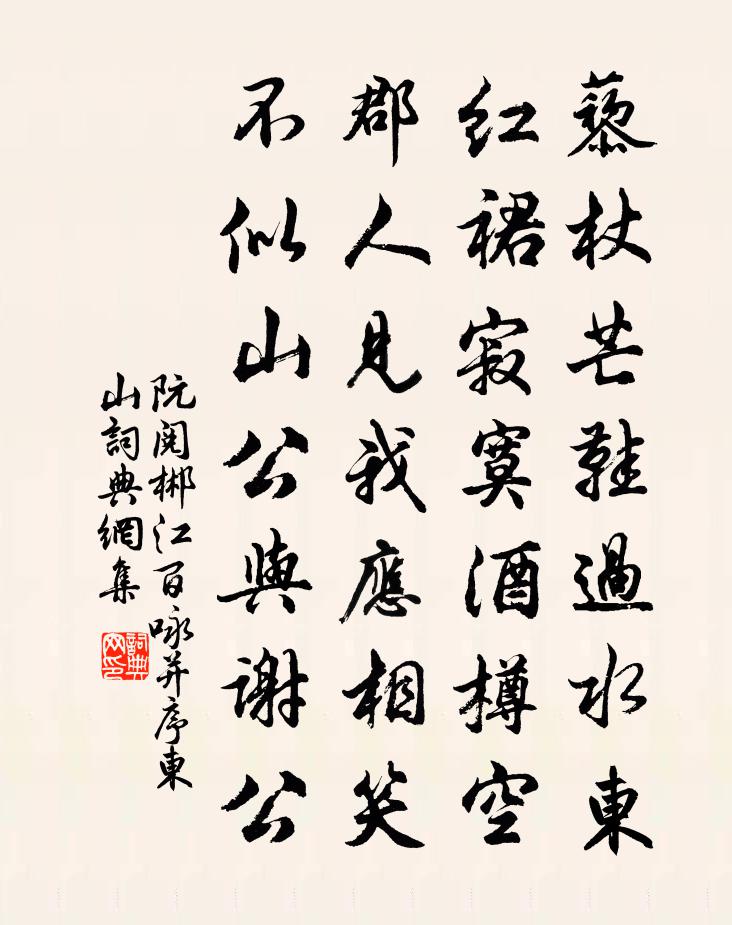 藜杖芒鞋過水東
紅裙寂寞酒樽空
郡人見我應相笑
不似山公與謝公
阮閱郴江百咏并序東
山詞典網集
詞典
網印